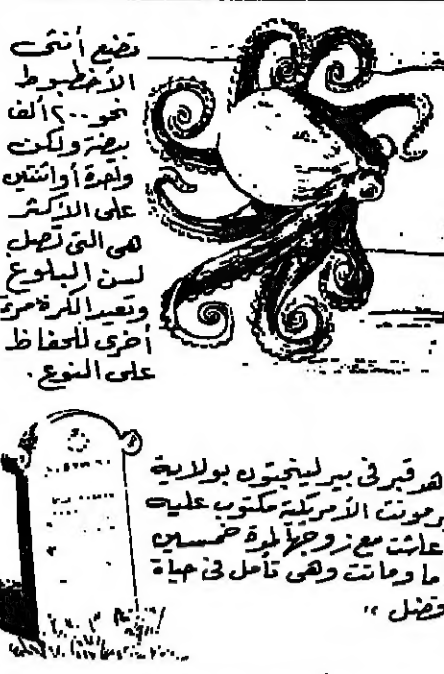 تضع أنثى
الأخطبوط
نحو ٢٠٠ ألف
بيضة ولكن
واحدة أو اثنتين
على الأكثر
هى التى تصل
لسن البلوغ
وتعيد الكرة مرة
أخرى للحفاظ
على النوع .
هد قبر فى بيرلينجتون بولاية
رمونت الأمريكية مكتوب عليه
عاشت مع زوجها لمدة خمسين
ما وماتت وهى تأمل فى حياة
فضل "